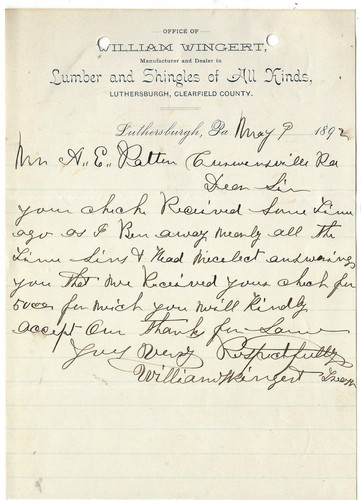 OFFICE OF
WILLIAM WINGERT,
Manufacturer and Dealer in
Lumber and Shingles of All Kinds,
LUTHERSBURGH, CLEARFIELD COUNTY.
Luthersburgh, Pa May 9 1892
A. E. Patten Curwensville Pa
Dear Sir
your check Recieved Some time
ago as I Ben away nearly all the
time Sins & Had Neclect answering
you that we Recieved your check for
for wich you will Kindly
accept Our thanks for Same
yors Very Respectfully
William Wingert